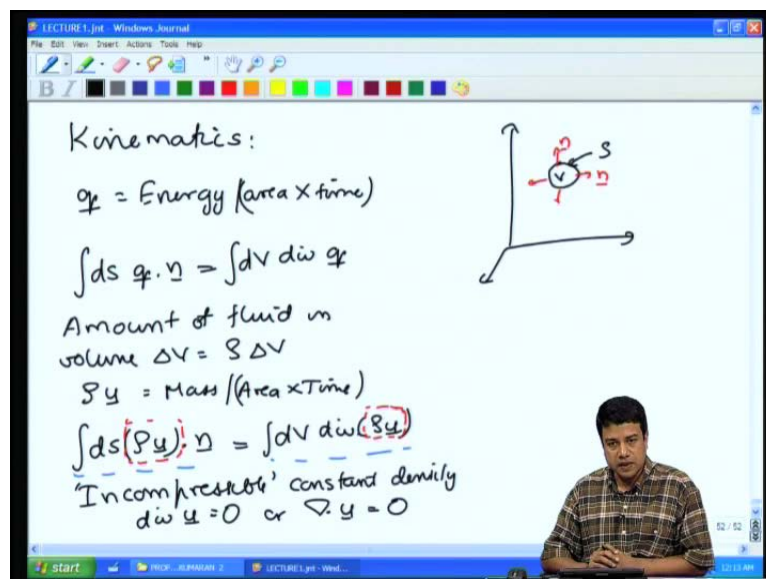 LECTURE1.jnt - Windows Journal
File Edit View Insert Actions Tools Help
B I
Kinematics:
q = Energy/(area X time)
∫ds q . n = ∫dV div q
Amount of fluid in
volume ΔV = ρ ΔV
ρu = Mass/(Area x Time)
∫ds(ρu) . n = ∫dV div(ρu)
'Incompressible' constant density
div u = 0 or ∇. u = 0
n
S
V
n
52 / 52
start
PROF...KUMARAN 2
LECTURE1.jnt - Wind...
12:13 AM